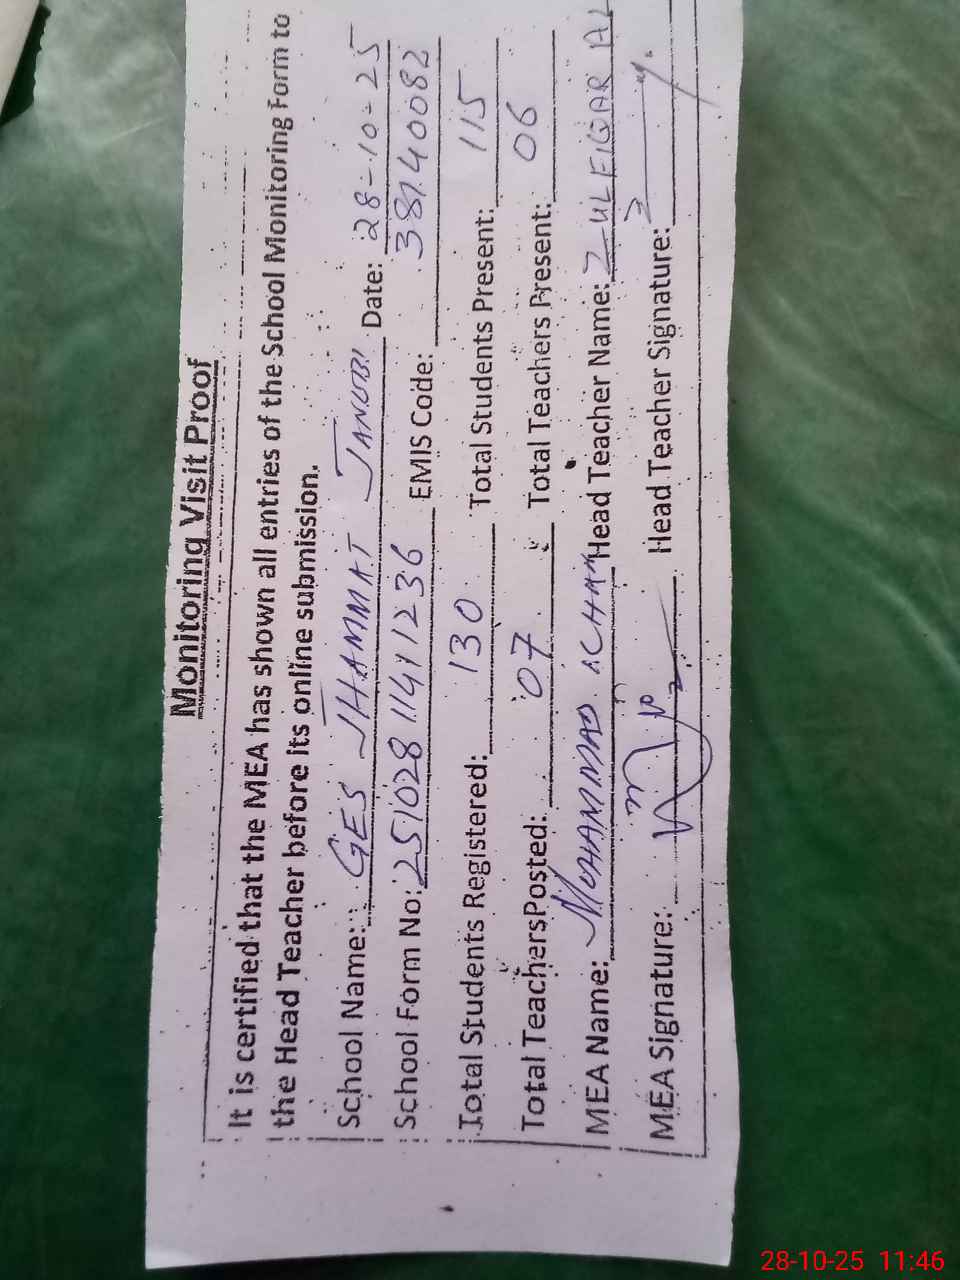 Monitoring Visit Proof
It is certified that the MEA has shown all entries of the School Monitoring Form to
the Head Teacher before its online submission.
School Name: GES JHAMMAT JANUBI Date: 28-10-25
School Form No: 251028 1141236 EMIS Code: 38140082
Total Students Registered: 130 Total Students Present: 115
Total TeachersPosted: 07 Total Teachers Present: 06
MEA Name: MOHAMMAD Head Teacher Name: ZULFIQAR AL
MEA Signature: Head Teacher Signature:
28-10-25 11:46